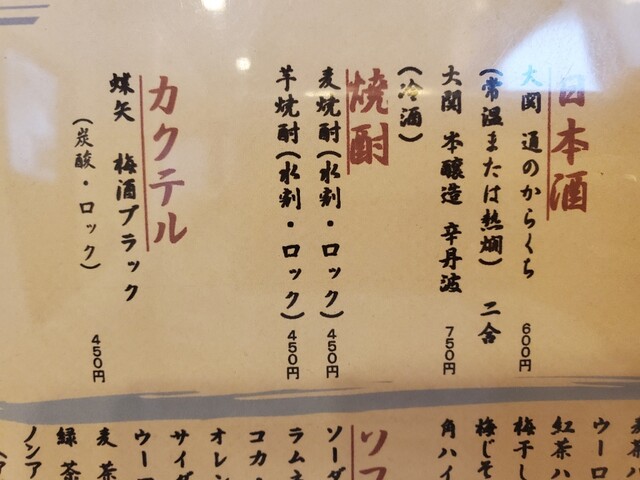 日本酒
大関 道のからくち 600円
(常温または熱燗) 二合
大関 本醸造 辛丹波 750円
(冷酒)
焼酎
麦焼酎(水割・ロック) 450円
芋焼酎(水割・ロック) 450円
カクテル
蝶矢 梅酒ブラック 450円
(炭酸・ロック)
麦茶ハ
ウーロ
紅茶ハ
梅干し
梅じそ
角ハイ
ソフ
ソーダ
ラムネ
コカ・
オレン
サイダ
ウーロ
麦茶
緑茶
ノンア